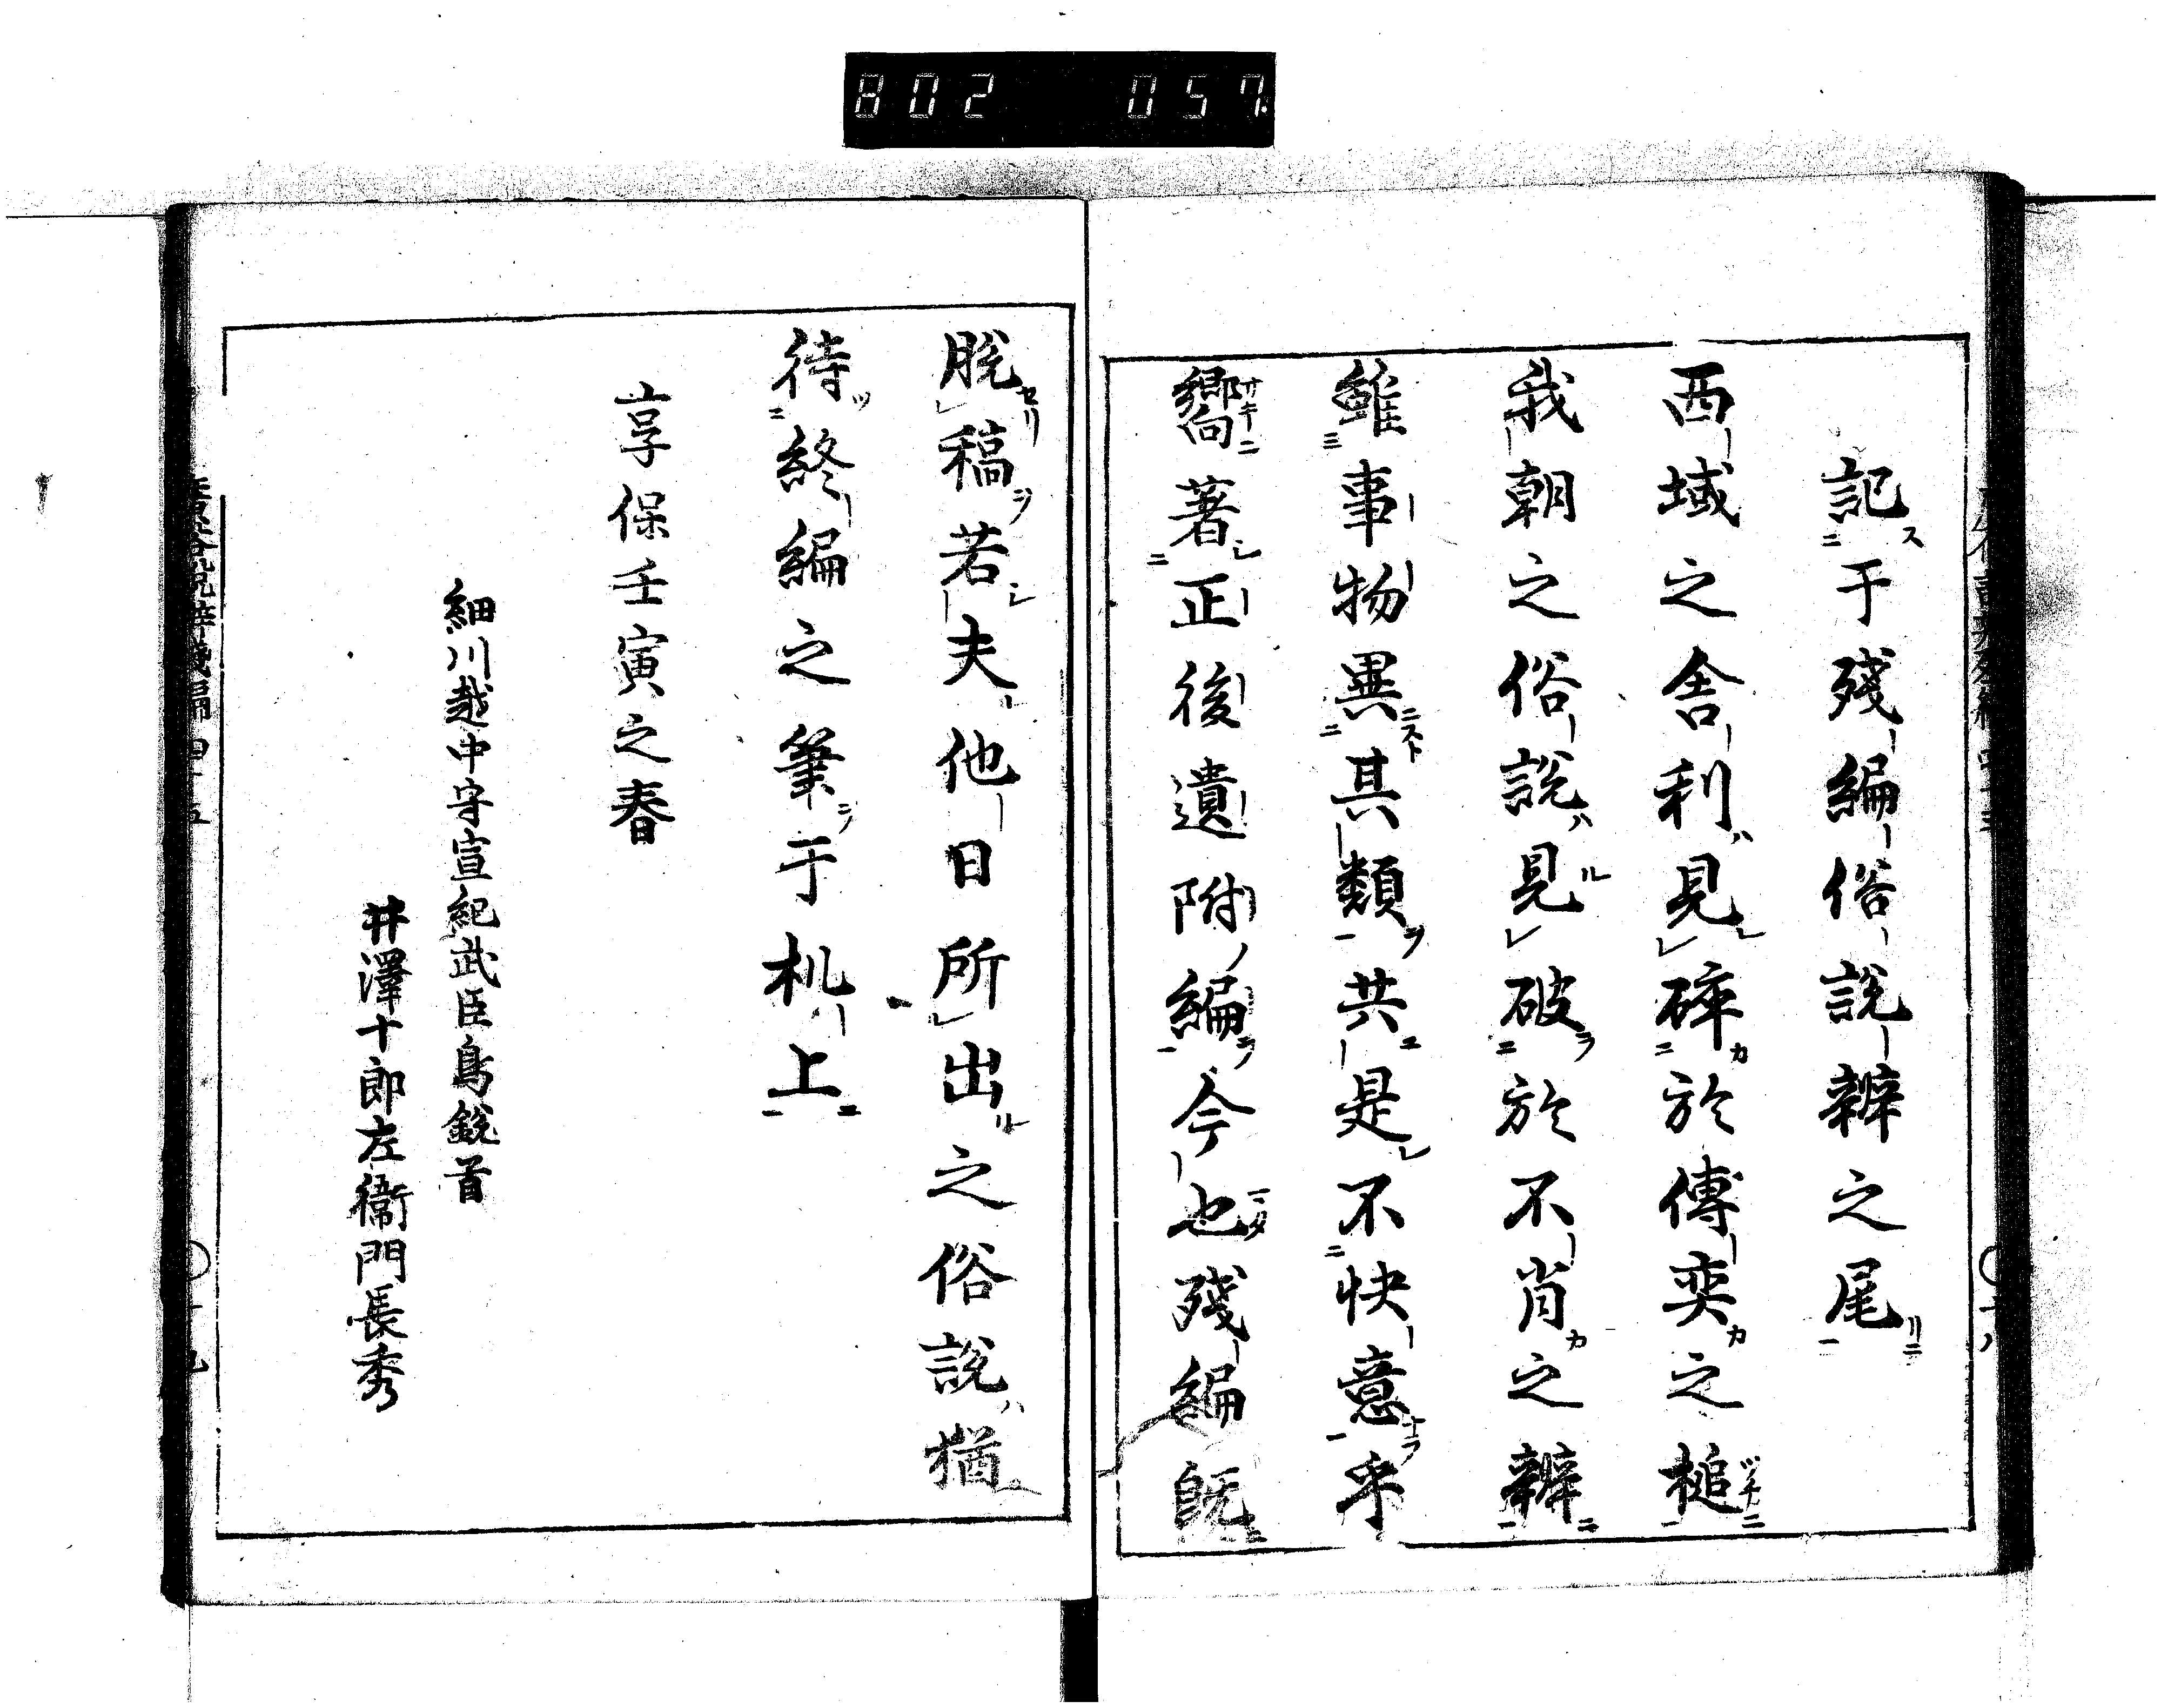 802 057
記于殘編俗說辯之尾
西域之舎利見碎於傳奕之槌
我朝之俗說見破於不肖之辯
雖事物異其類共是不快意乎
嚮著正後遺附編今也殘編既
脫稿若夫他日所出之俗說猶
待終編之筆于机上
享保壬寅之春
細川越中守宣紀武臣鳥銃首
井澤十郎左衞門長秀